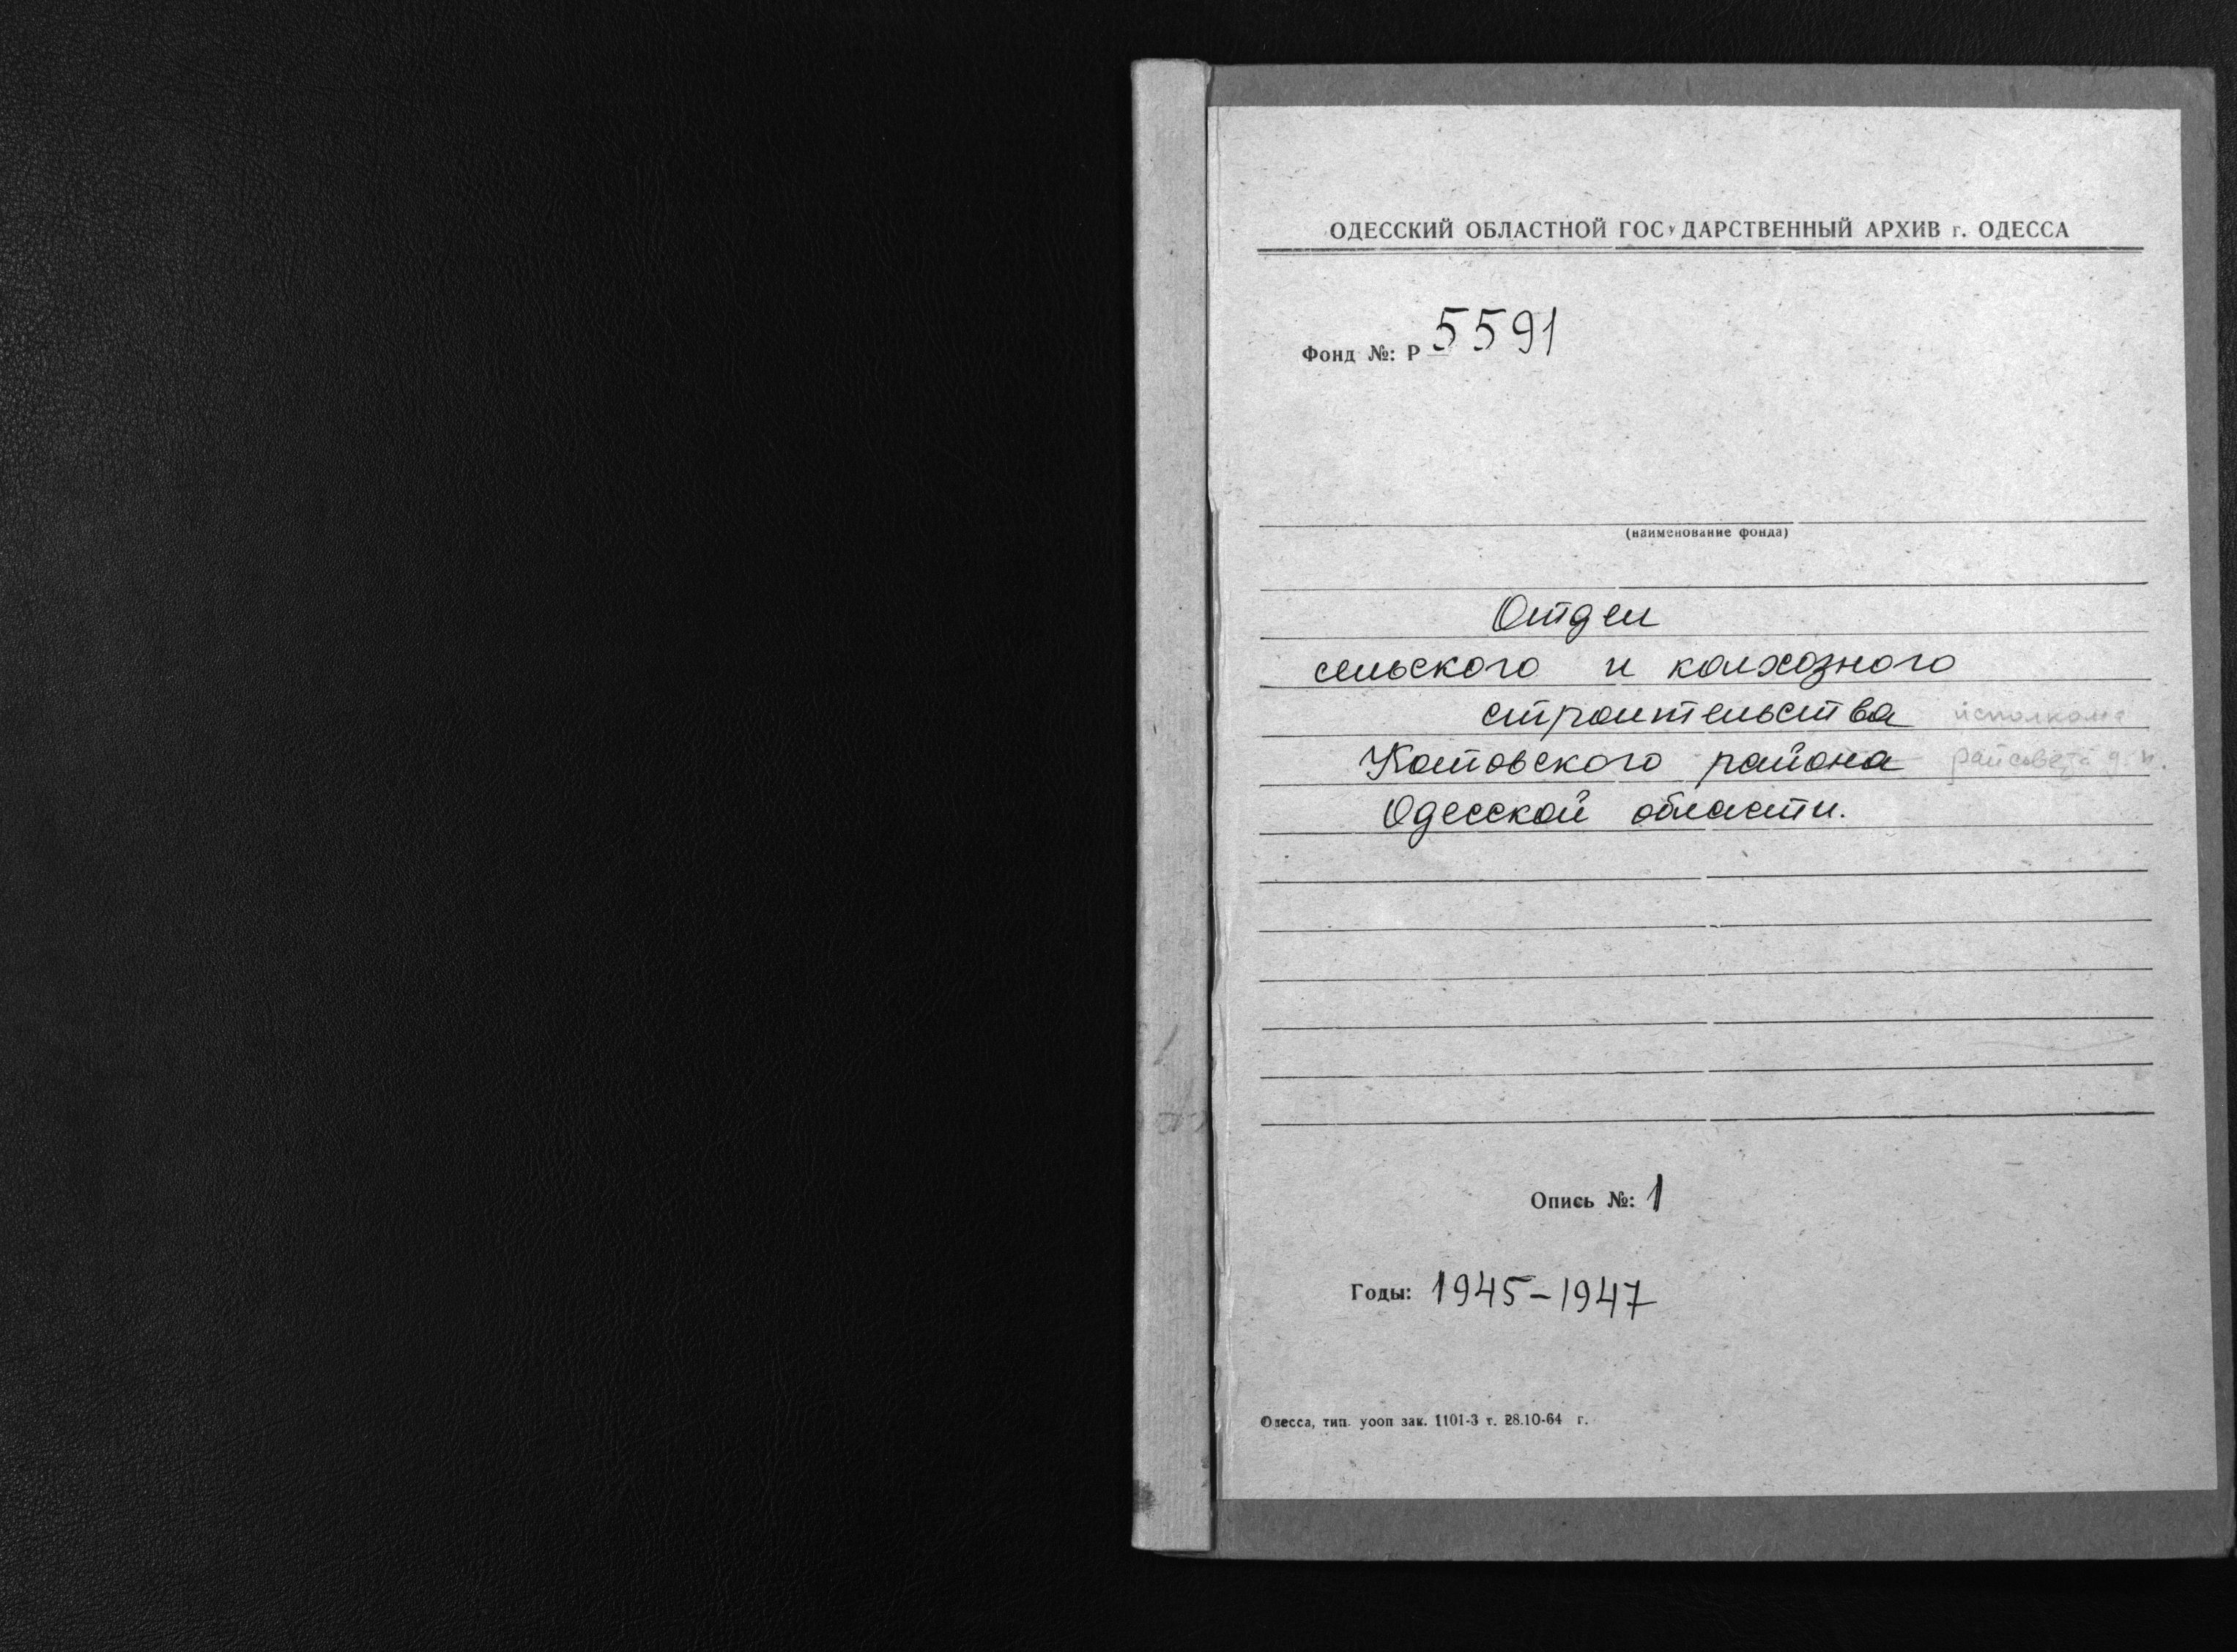 ОДЕССКИЙ ОБЛАСТНОЙ ГОСУДАРСТВЕННЫЙ АРХИВ г. ОДЕССА
Фонд №: Р 5591
(наименование фонда)
Отдел
сельского и колхозного
строительства исполкома
Котовского района райсовета д.т.
Одесской области.
Опись №: 1
Годы: 1945-1947
Одесса, тип. уооп зак. 1101-3 т. 28.10-64 г.